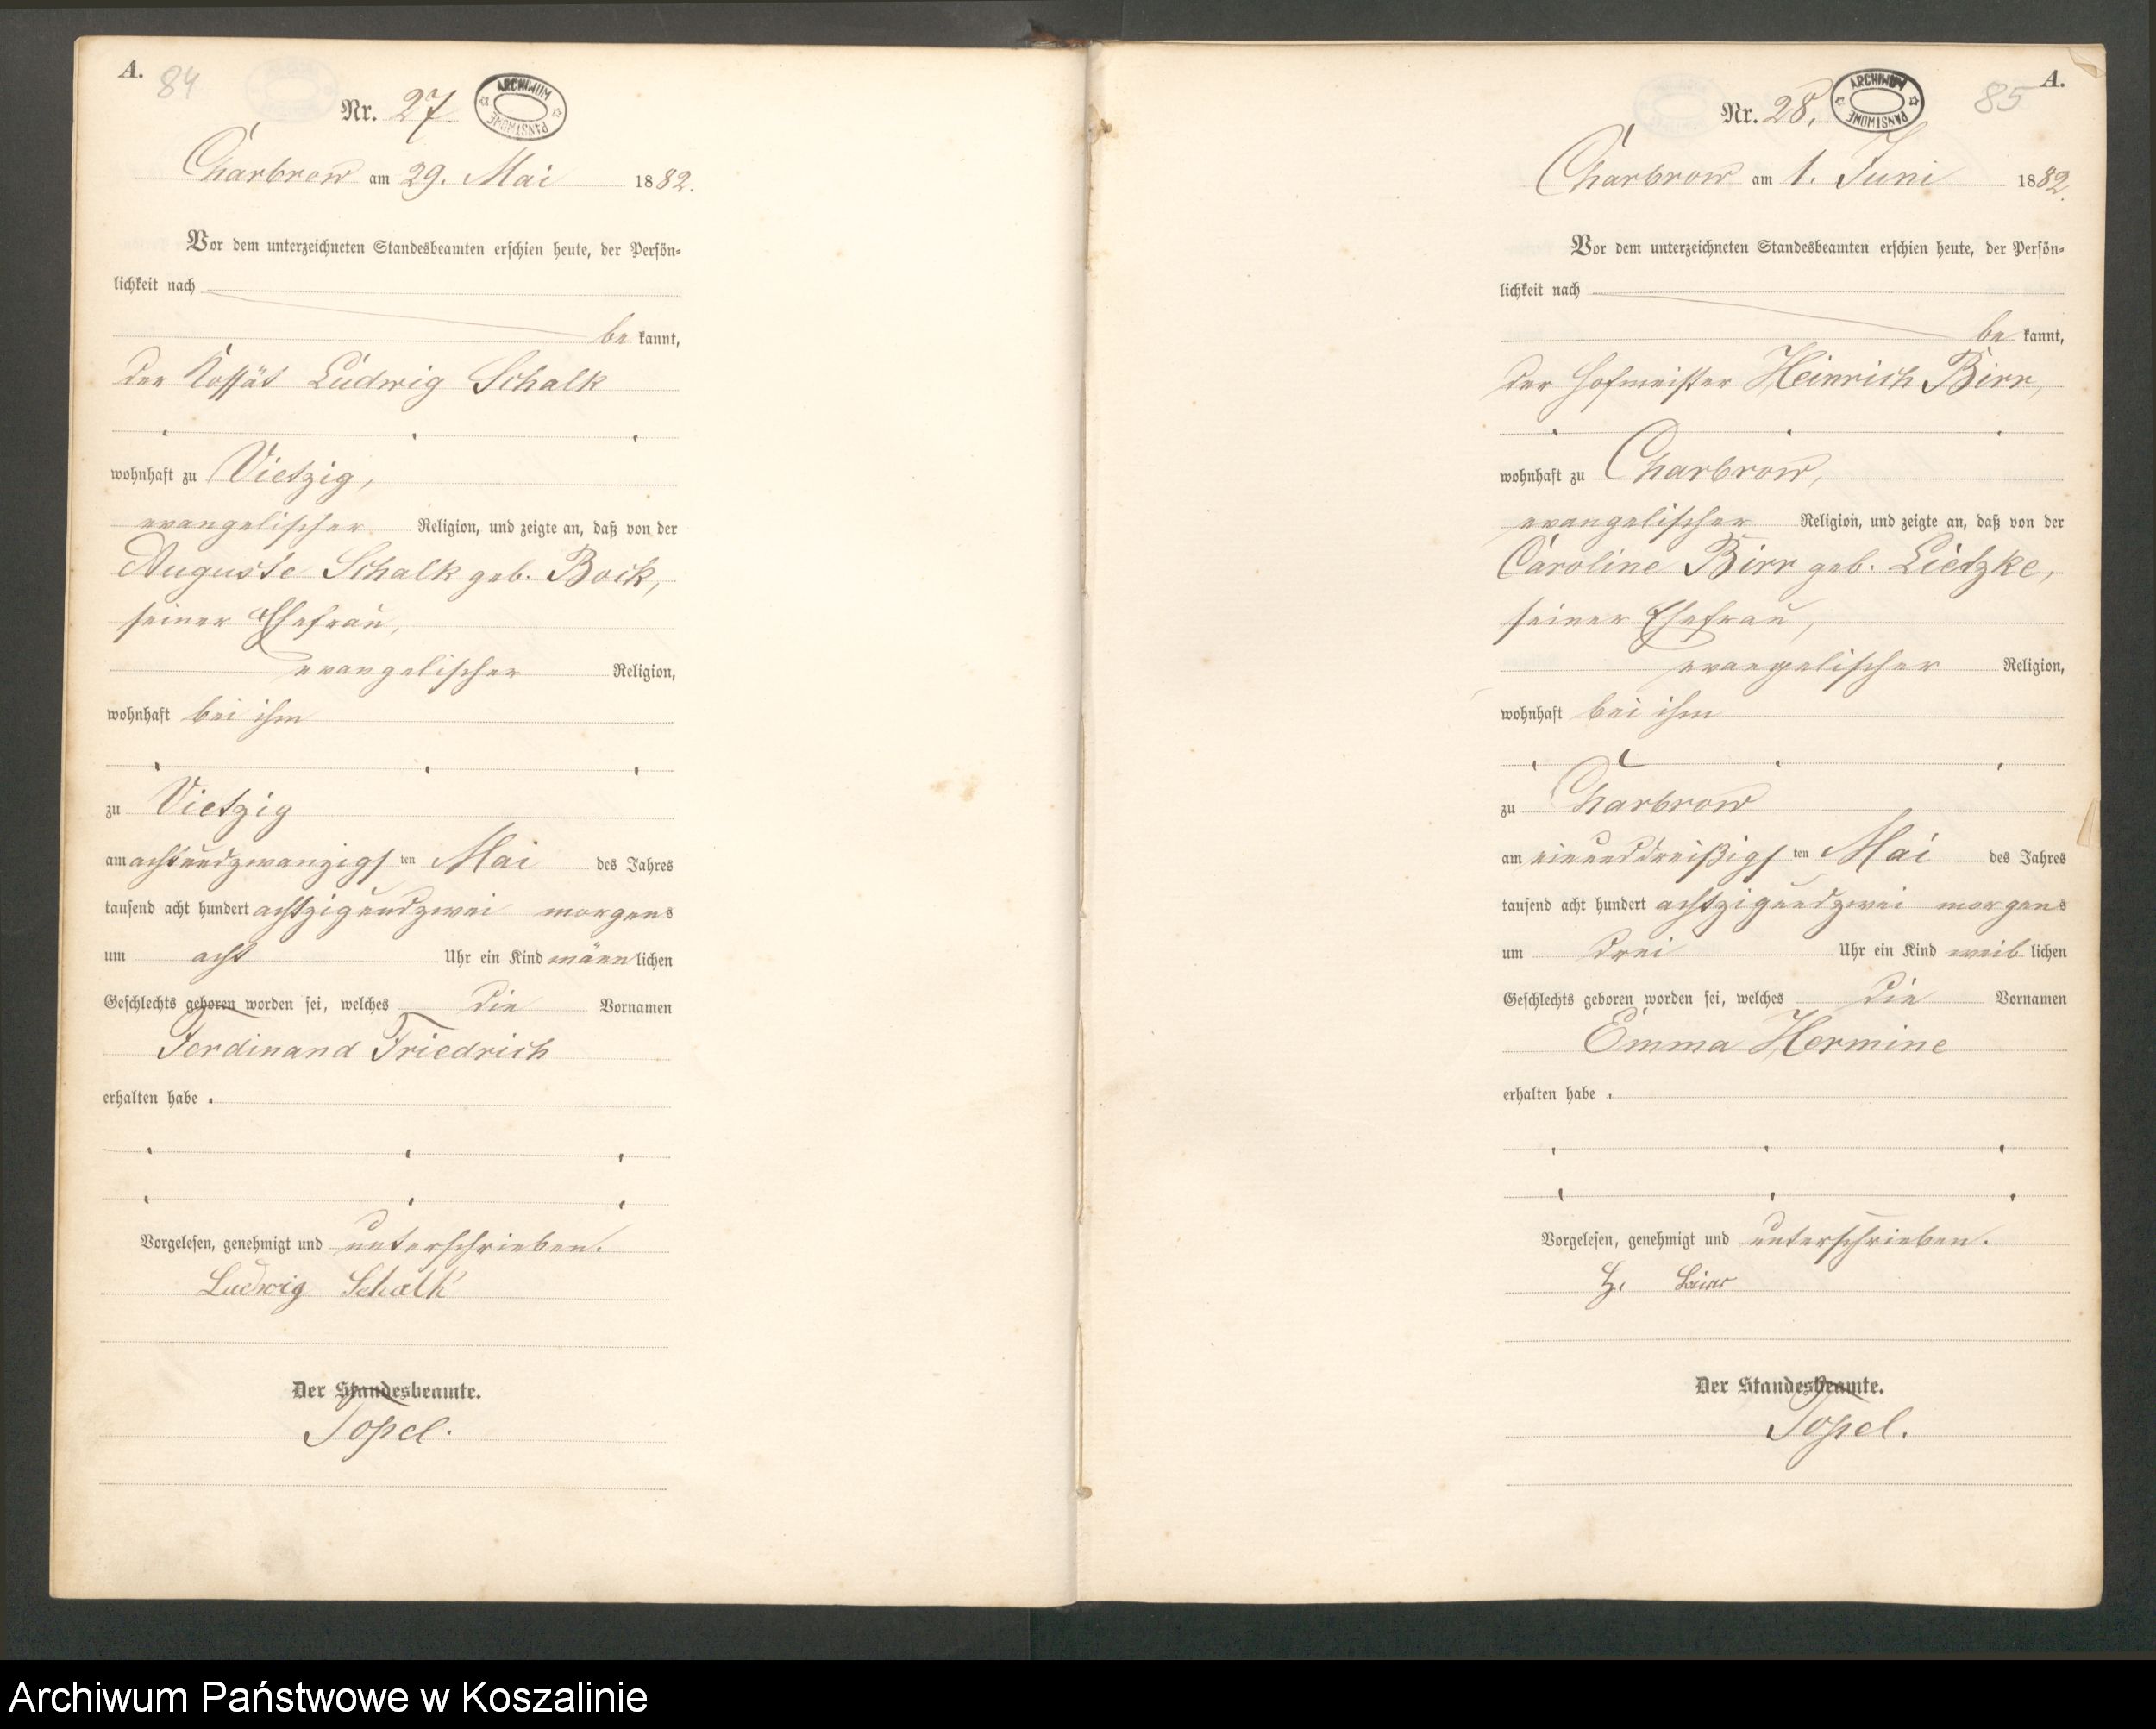 A. 84
Nr. 27
ARCHIWUM PAŃSTWOWE
Charbrow am 29. Mai 1882.
Vor dem unterzeichneten Standesbeamten erschien heute, der Persön-
lichkeit nach
be kannt,
der Kossät Ludwig Schalk
wohnhaft zu Vietzig,
evangelischer Religion, und zeigte an, daß von der
Auguste Schalk geb. Bock,
seiner Ehefrau,
evangelischer Religion,
wohnhaft bei ihm
zu Vietzig
am achtundzwanzigs ten Mai des Jahres
tausend acht hundert achtzigundzwei morgens
um acht Uhr ein Kind männ lichen
Geschlechts geboren worden sei, welches die Vornamen
Ferdinand Friedrich
erhalten habe .
Vorgelesen, genehmigt und unterschrieben.
Ludwig Schalk
Der Standesbeamte.
Topel.
85 A.
Nr. 28.
ARCHIWUM PAŃSTWOWE
Charbrow am 1. Juni 1882.
Vor dem unterzeichneten Standesbeamten erschien heute, der Persön-
lichkeit nach
be kannt,
der Hofmeister Heinrich Birr,
wohnhaft zu Charbrow,
evangelischer Religion, und zeigte an, daß von der
Caroline Birr geb. Lietzke,
seiner Ehefrau,
evangelischer Religion,
wohnhaft bei ihm
zu Charbrow
am einunddreißigs ten Mai des Jahres
tausend acht hundert achtzigundzwei morgens
um drei Uhr ein Kind weib lichen
Geschlechts geboren worden sei, welches die Vornamen
Emma Hermine
erhalten habe .
Vorgelesen, genehmigt und unterschrieben.
H.
Der Standesbeamte.
Topel.
Archiwum Państwowe w Koszalinie